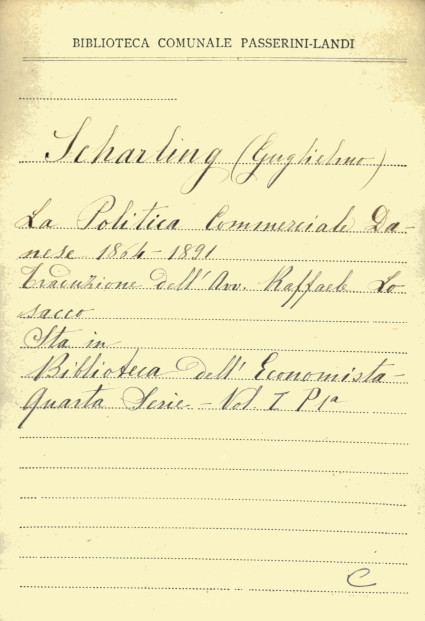 BIBLIOTECA COMUNALE PASSERINI-LANDI
Scharling (Guglielmo)
La Politica Commerciale Da-
nese 1864-1891
Traduzione dell' Avv. Raffaele Lo
sacco
Sta in
Biblioteca dell' Economista-
Quarta Serie - Vol. I P 1ª
C